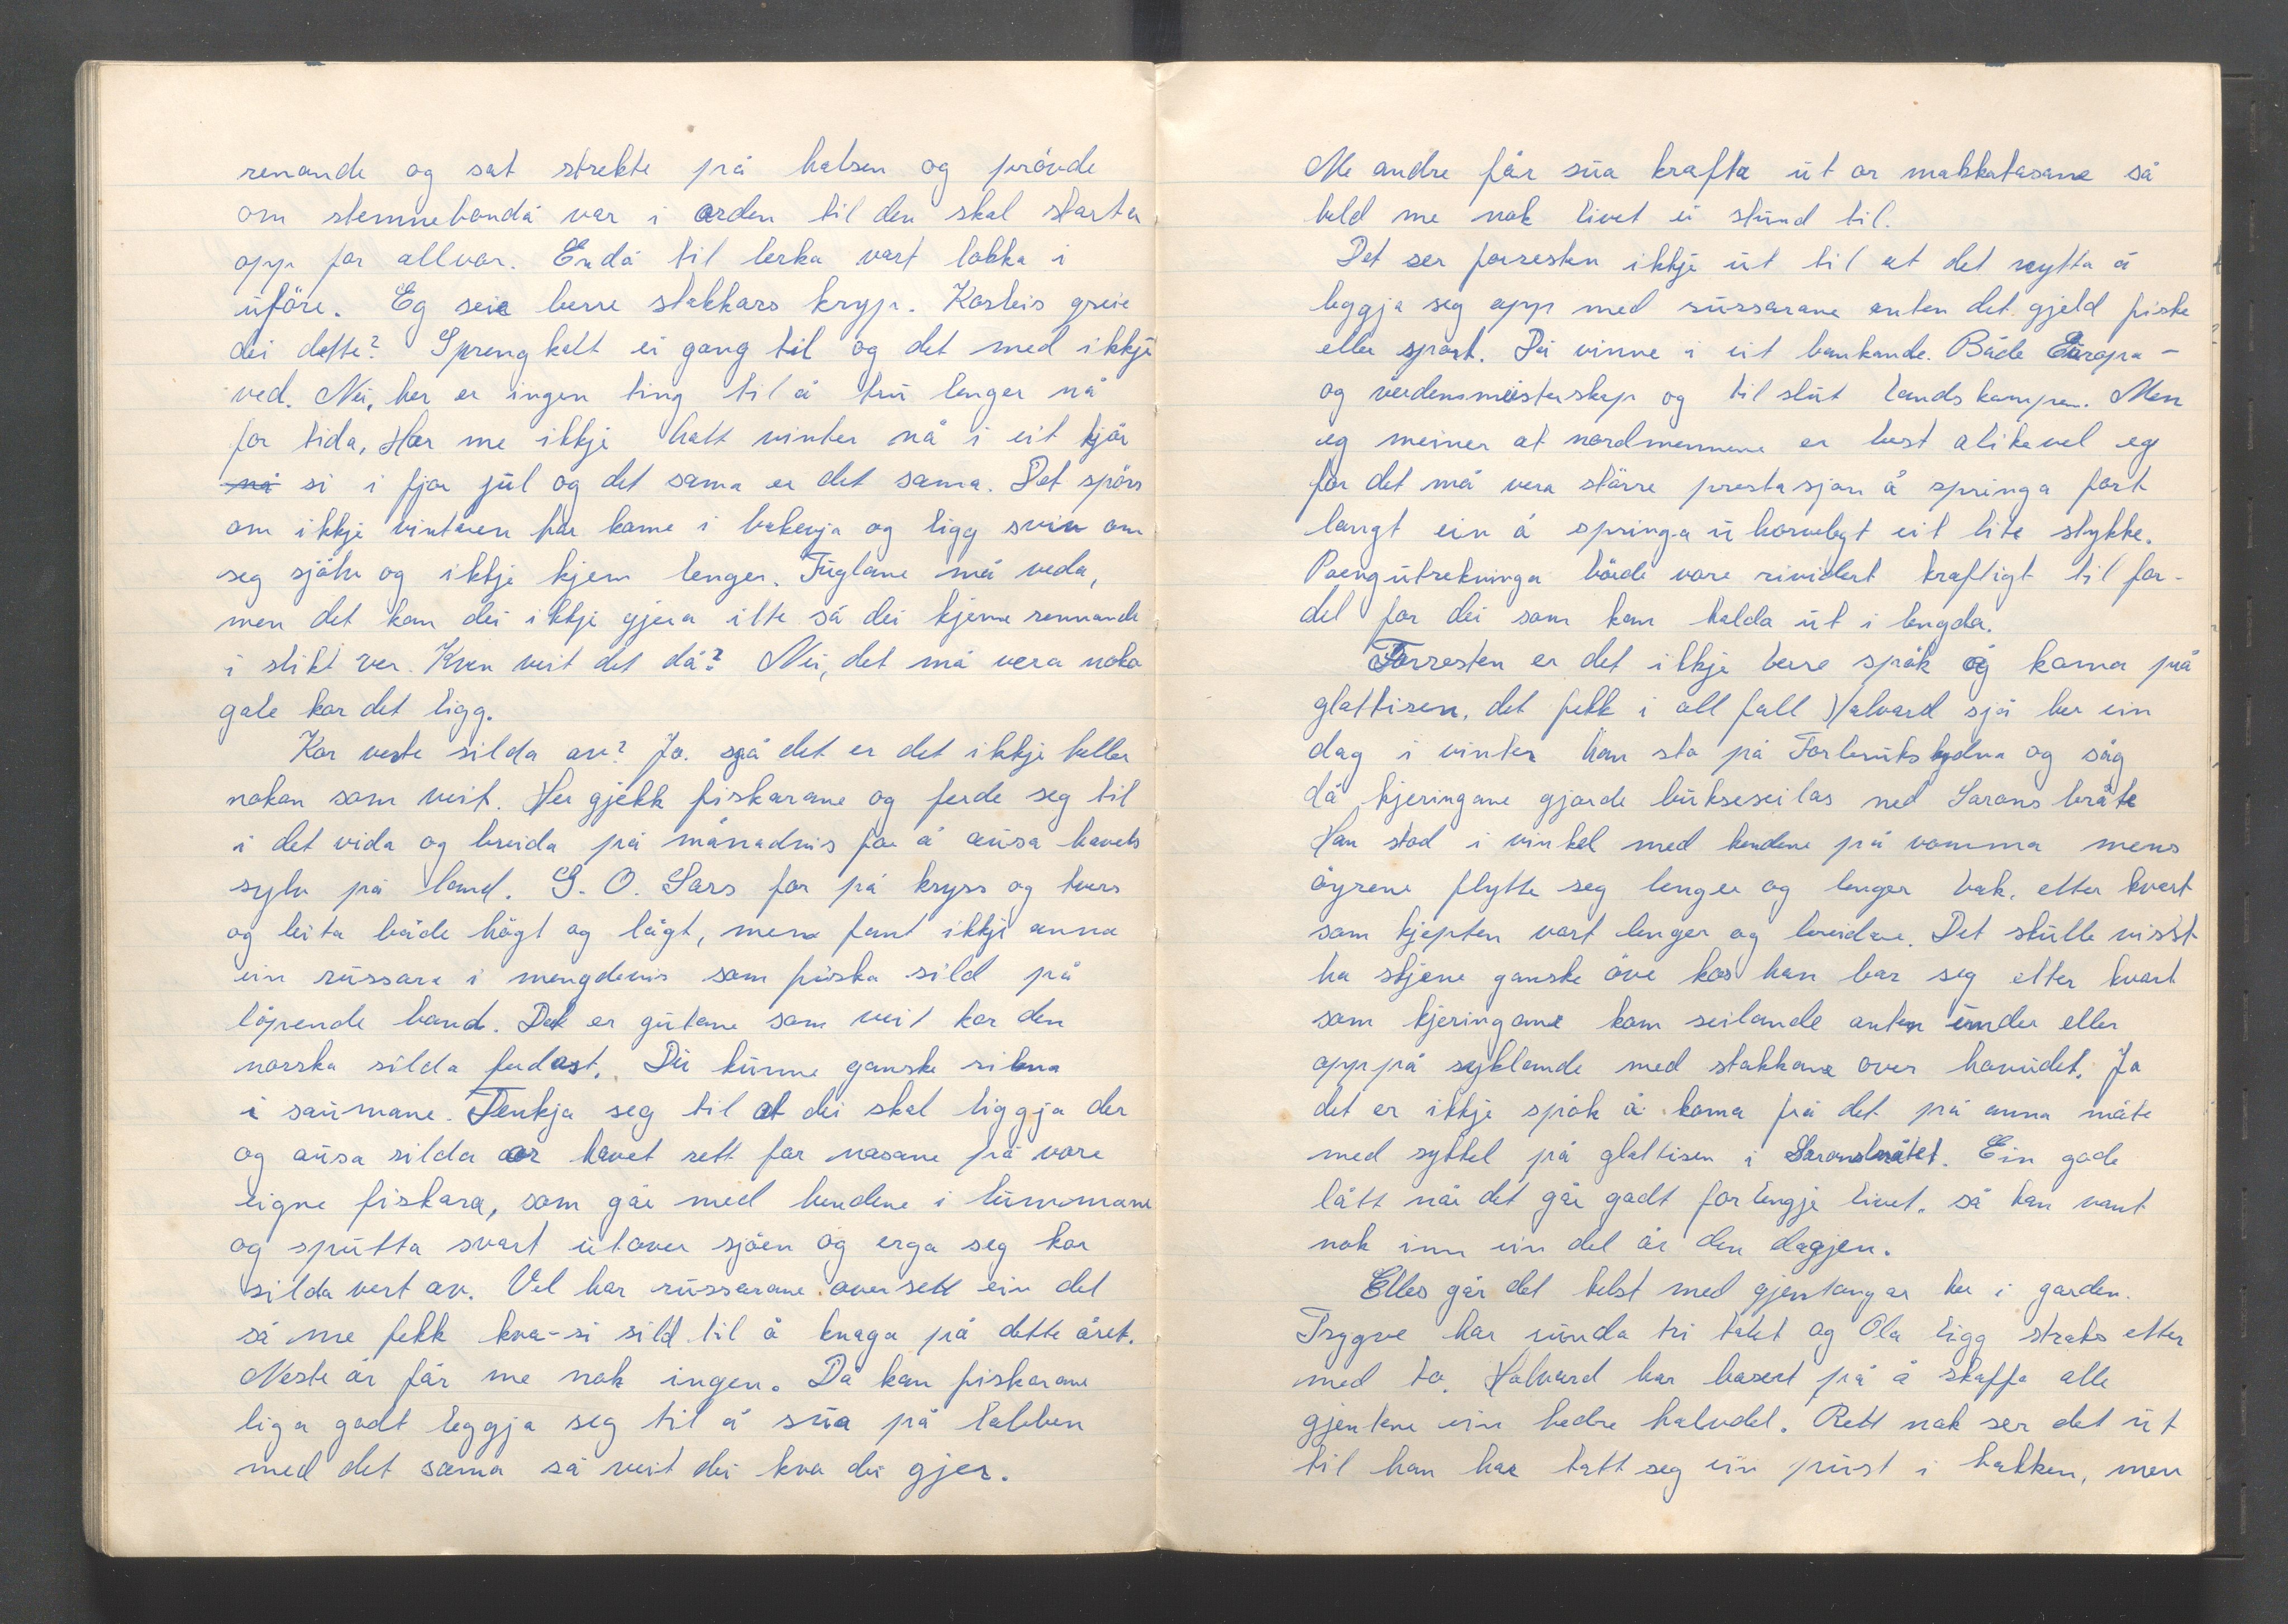 renande og sat strekte på halsen og prövde
om stemmebondå var i orden til den skal starta
opp for allvor. Endå til lerka vart lokka i
uföre. Eg seie berre stakkars kryp. Korleis greie
dei dette? Sprengkalt ei gong til og det med ikkje
ved. Nei, her er ingen ting til å tru lenger nå
for tida, Har me ikkje hatt vinter nå i eit kjör
nå si i fjor jul og det sama er det sama. Det spörs
om ikkje vinteren har kome i bakevja og ligg svin om
seg sjölv og ikkje kjem lenger. Fuglane må veda,
men det kan dei ikkje gjera ilte så dei kjeme rennande
i slikt ver. Kven veit det då? Nei, det må vera noko
gale kor det ligg.
Kor veste silda av? Ja. spå det er det ikkje heller
nokon som veit. Her gjekk fiskarane og ferde seg til
i det vida og breida på månadvis for å ausa havets
sylv på land. G. O. Sars for på kryss og tvers
og leita både högt og lågt, men fant ikkje anna
ein russara i mengdevis som fiska sild på
löpende band. Det er gutane som veit kor den
norska silda ferdast. Du kunne ganske sikna
i saumane. Tenkja seg til at dei skal liggja der
og ausa silda or havet rett for nasane på vore
eigne fiskara, som går med hendene i lummane
og sputta svart utover sjöen og erga seg kor
silda vert av. Vel har russarane oversett ein del
så me fekk kva-si sild til å knaga på dette året.
Neste år får me nok ingen. Då kan fiskarane
liga godt leggja seg til å sua på labben
med det sama så veit dei kva dei gjer.
Me andre får sua krafta ut or makkatasane så
held me nok livet ei stund til.
Det ser forresten ikkje ut til at det nytta å
leggja seg opp med russarane anten det gjeld fiske
eller sport. Dei vinne i eit bankande. Både Europa-
og verdensmeisterskap og til slut landskampen. Men
eg meiner at nordmennene er best alikavel eg
for det må vera större prestasjon å springa fort
langt ein å springa u horvelegt eit lite stykke.
Poengutrekninga börde vore rividert kraftigt til for-
del for dei som kan halda ut i lengda.
Forresten er det ikkje berre spök og koma på
glattisen, det fekk i all fall Halvard sjå her ein
dag i vinter han sto på Forbrukshydna og såg
då kjeringane gjorde bukseseilas ned Sarons bråte
Han stod i vinkel med hendene på vomma mens
öyrene flytte seg lenger og lenger bak, etter kvart
som kjeften vart lenger og breidare. Det skulle visst
ha skjene ganske öve kos han bar seg etter kvart
som kjeringane kom seilande anten under eller
opppå syklande med stakkane over hovudet. Ja
det er ikkje spök å koma frå det på anna måte
med sykkel på glattisen i Saronsbråtet. Ein gode
lått når det går godt forlengje livet, så han vant
nok inn ein del år den dagjen.
Elles går det helst med gjentongar her i garden.
Trygve har runda tri talet og Ola ligg straks etter
med to. Halvard har basert på å skaffa alle
gjentene ein bedre halvdel. Rett nok ser det ut
til han har tatt seg ein pust i bakken, men